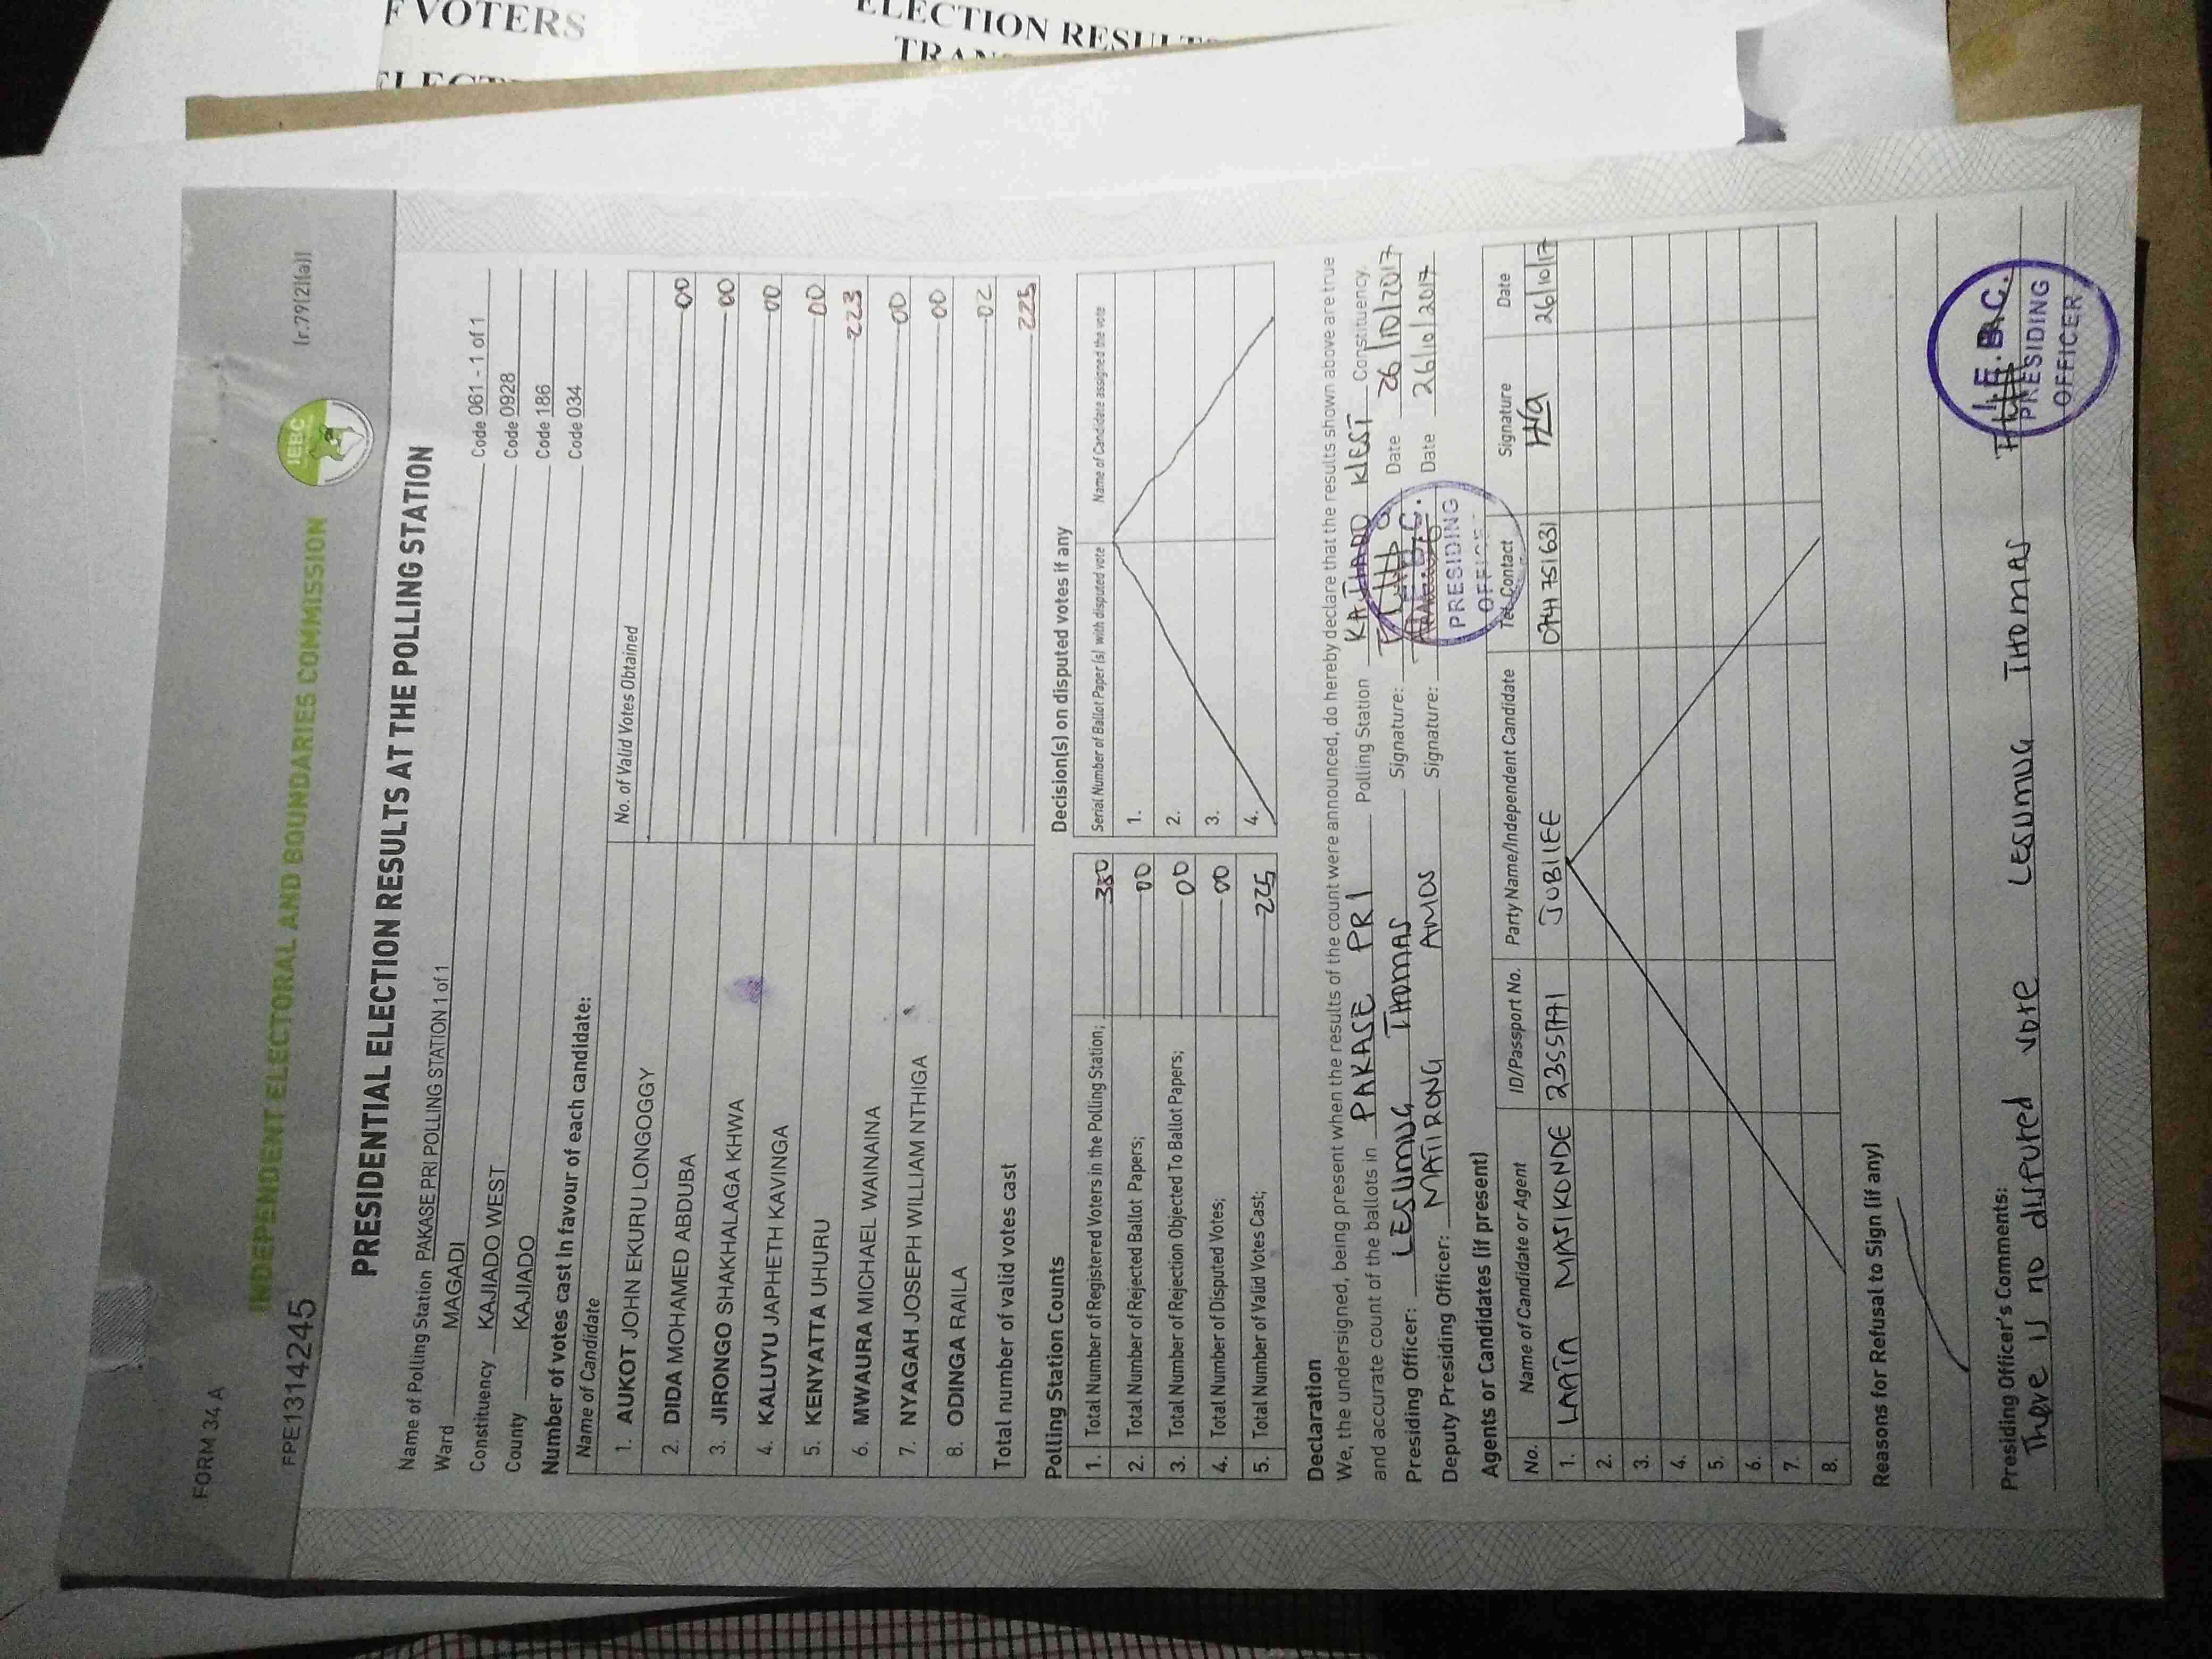 F VOTERS
ELECTION
FORM 34A
INDEPENDENT ELECTORAL AND BOUNDARIES COMMISSION
IEBC
(r.79(2)(a))
FPE1314245
PRESIDENTIAL ELECTION RESULTS AT THE POLLING STATION
Name of Polling Station PAKASE PRI POLLING STATION 1 of 1 Code 061 - 1 of 1
Ward MAGADI Code 0928
Constituency KAJIADO WEST Code 186
County KAJIADO Code 034
Number of votes cast in favour of each candidate:
Name of Candidate No. of Valid Votes Obtained
1. AUKOT JOHN EKURU LONGOGGY 00
2. DIDA MOHAMED ABDUBA 00
3. JIRONGO SHAKHALAGA KHWA 00
4. KALUYU JAPHETH KAVINGA 00
5. KENYATTA UHURU 223
6. MWAURA MICHAEL WAINAINA 00
7. NYAGAH JOSEPH WILLIAM NTHIGA 00
8. ODINGA RAILA 02
Total number of valid votes cast 225
Polling Station Counts
1. Total Number of Registered Voters in the Polling Station; 330
2. Total Number of Rejected Ballot Papers; 00
3. Total Number of Rejection Objected To Ballot Papers; 00
4. Total Number of Disputed Votes; 00
5. Total Number of Valid Votes Cast; 225
Decision(s) on disputed votes if any
Serial Number of Ballot Paper (s) with disputed vote Name of Candidate assigned the vote
1.
2.
3.
4.
Declaration
We, the undersigned, being present when the results of the count were announced, do hereby declare that the results shown above are true
and accurate count of the ballots in PAKASE PRI Polling Station KAJIADO WEST Constituency.
Presiding Officer: LESUMUG THOMAS Signature: Date 26/10/2017
Deputy Presiding Officer: MATIRONG AMOS Signature: Date 26/10/2017
PRESIDING
Agents or Candidates (if present)
No. Name of Candidate or Agent ID/Passport No. Party Name/Independent Candidate Tel. Contact Signature Date
1. LAATA MASIKONDE 23551771 JUBILEE 0741751631 26/10/17
2.
3.
4.
5.
6.
7.
8.
Reasons for Refusal to Sign (if any)
Presiding Officer's Comments:
There is no disputed vote LESUMUG THOMAS
I.E.B.C.
PRESIDING
OFFICER